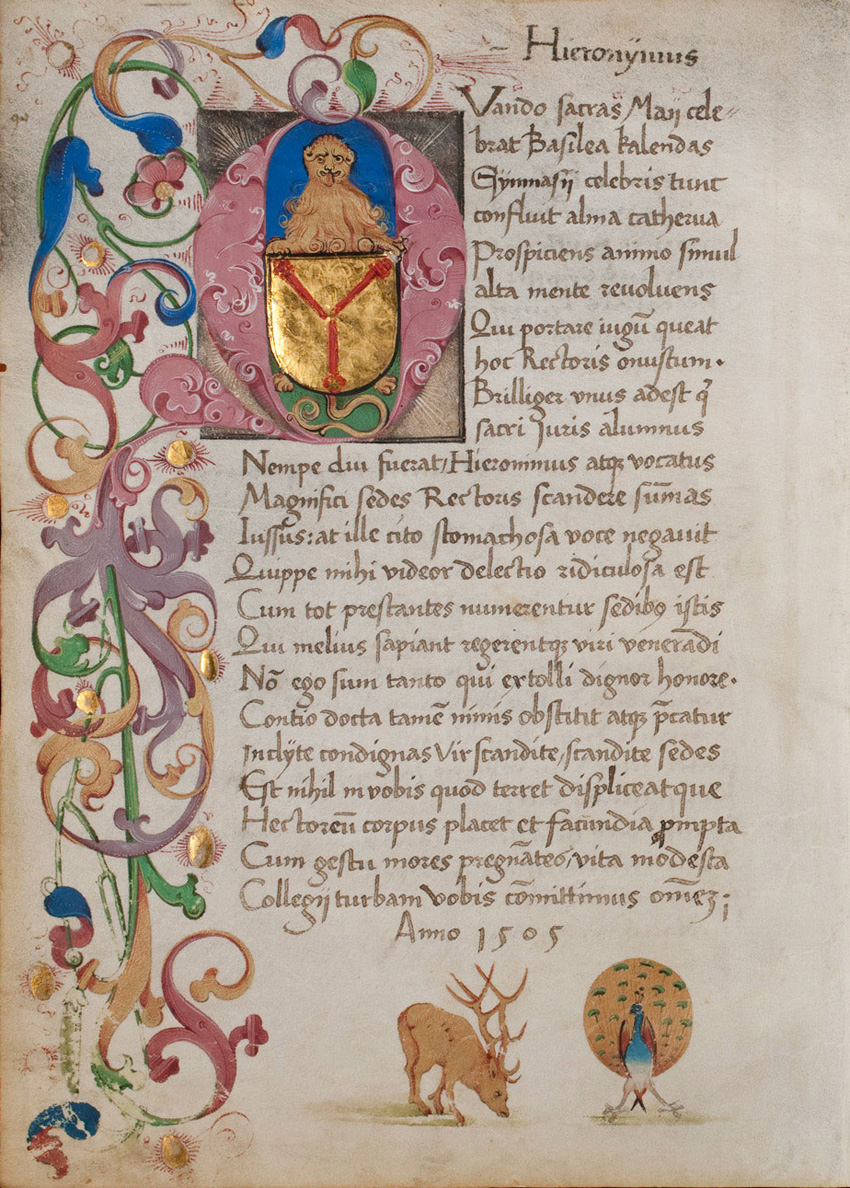 – Hieronymus
Vando sacras Maij cele-
brat Basilea kalendas
Gymnasij celebris tunc
confluit alma catherua
Prospiciens animo simul
alta mente reuoluens
Qui portare iugū queat
hoc Rectoris onustum.
Brilliger vnus adest q̄
sacri Juris alumnus
Nempe diu fuerat/Hieronimus atq; vocatus
Magnifici sedes Rectoris scandere sūmas
Iussus: at ille cito stomachosa voce negauit
Quippe mihi videor delectio ridiculosa est
Cum tot prestantes numerentur sedibꝰ istis
Qui melius sapiant regerentq; viri venerādi
Nō ego sum tanto qui extolli dignor honore.
Contio docta tamē nimis obstitit atq; p̄catur
Inclyte condignas Vir scandite, scandite sedes
Est nihil in vobis quod terret displiceatque
Hectoreū corpus placet et facundia pmpta
Cum gestu mores pregnātes, vita modesta
Collegij turbam vobis cōmittimus om̄eȝ;
Anno 1505